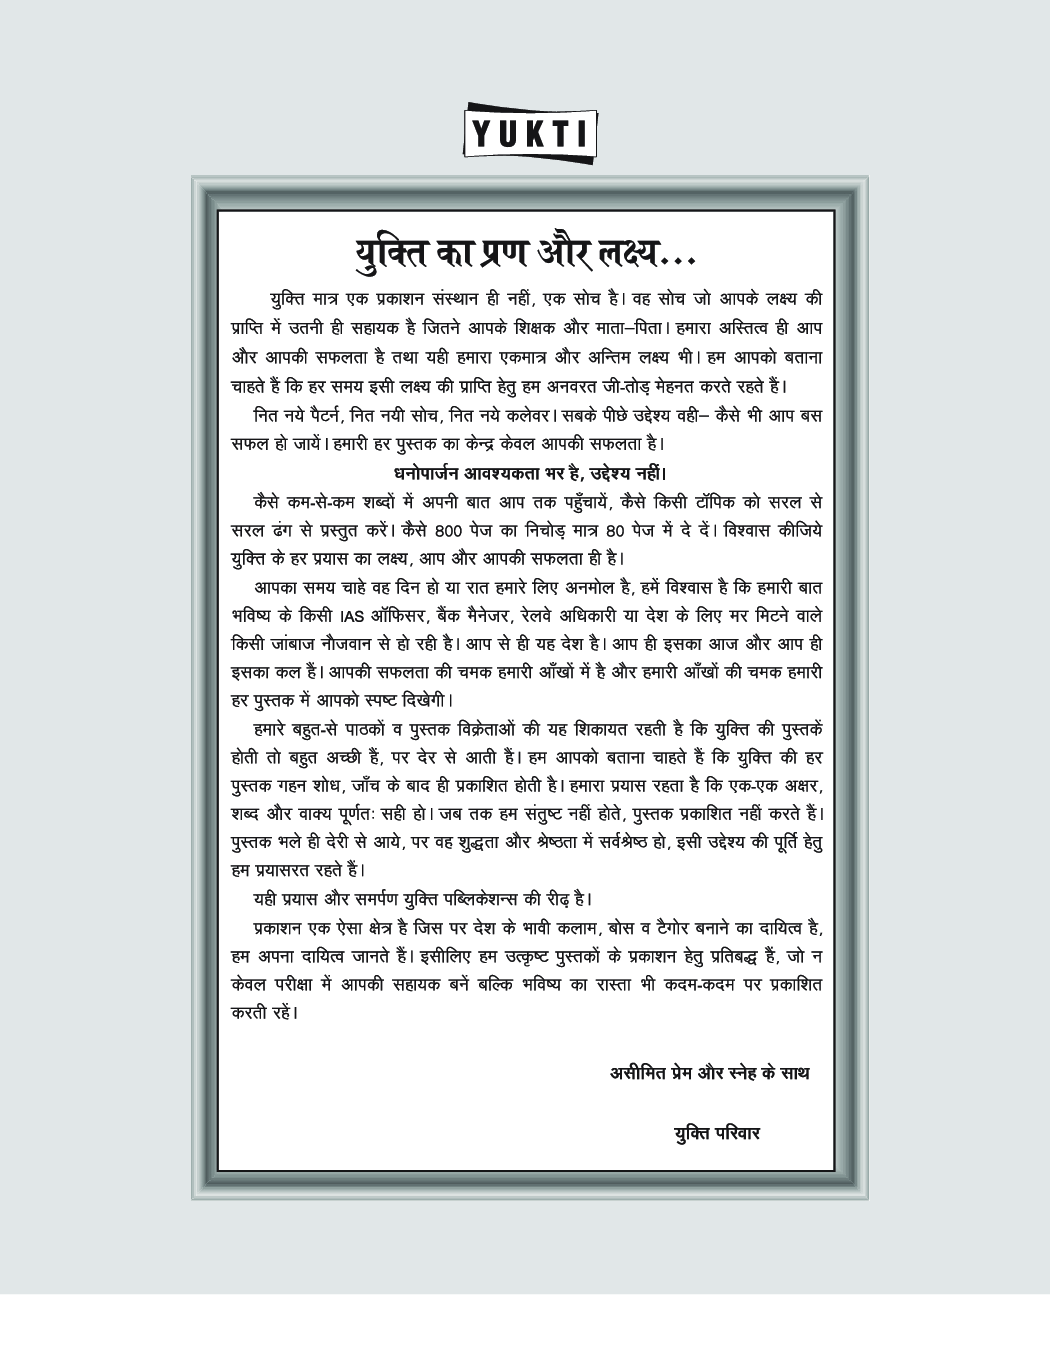 YUKTI
युक्ति का प्रण और लक्ष्य...
युक्ति मात्र एक प्रकाशन संस्थान ही नहीं, एक सोच है। वह सोच जो आपके लक्ष्य की
प्राप्ति में उतनी ही सहायक है जितने आपके शिक्षक और माता–पिता। हमारा अस्तित्व ही आप
और आपकी सफलता है तथा यही हमारा एकमात्र और अन्तिम लक्ष्य भी। हम आपको बताना
चाहते हैं कि हर समय इसी लक्ष्य की प्राप्ति हेतु हम अनवरत जी-तोड़ मेहनत करते रहते हैं।
नित नये पैटर्न, नित नयी सोच, नित नये कलेवर। सबके पीछे उद्देश्य वही– कैसे भी आप बस
सफल हो जायें। हमारी हर पुस्तक का केन्द्र केवल आपकी सफलता है।
धनोपार्जन आवश्यकता भर है, उद्देश्य नहीं।
कैसे कम-से-कम शब्दों में अपनी बात आप तक पहुँचायें, कैसे किसी टॉपिक को सरल से
सरल ढंग से प्रस्तुत करें। कैसे 800 पेज का निचोड़ मात्र 80 पेज में दे दें। विश्वास कीजिये
युक्ति के हर प्रयास का लक्ष्य, आप और आपकी सफलता ही है।
आपका समय चाहे वह दिन हो या रात हमारे लिए अनमोल है, हमें विश्वास है कि हमारी बात
भविष्य के किसी IAS ऑफिसर, बैंक मैनेजर, रेलवे अधिकारी या देश के लिए मर मिटने वाले
किसी जांबाज नौजवान से हो रही है। आप से ही यह देश है। आप ही इसका आज और आप ही
इसका कल हैं। आपकी सफलता की चमक हमारी आँखों में है और हमारी आँखों की चमक हमारी
हर पुस्तक में आपको स्पष्ट दिखेगी।
हमारे बहुत-से पाठकों व पुस्तक विक्रेताओं की यह शिकायत रहती है कि युक्ति की पुस्तकें
होती तो बहुत अच्छी हैं, पर देर से आती हैं। हम आपको बताना चाहते हैं कि युक्ति की हर
पुस्तक गहन शोध, जाँच के बाद ही प्रकाशित होती है। हमारा प्रयास रहता है कि एक-एक अक्षर,
शब्द और वाक्य पूर्णतः सही हो। जब तक हम संतुष्ट नहीं होते, पुस्तक प्रकाशित नहीं करते हैं।
पुस्तक भले ही देरी से आये, पर वह शुद्धता और श्रेष्ठता में सर्वश्रेष्ठ हो, इसी उद्देश्य की पूर्ति हेतु
हम प्रयासरत रहते हैं।
यही प्रयास और समर्पण युक्ति पब्लिकेशन्स की रीढ़ है।
प्रकाशन एक ऐसा क्षेत्र है जिस पर देश के भावी कलाम, बोस व टैगोर बनाने का दायित्व है,
हम अपना दायित्व जानते हैं। इसीलिए हम उत्कृष्ट पुस्तकों के प्रकाशन हेतु प्रतिबद्ध हैं, जो न
केवल परीक्षा में आपकी सहायक बनें बल्कि भविष्य का रास्ता भी कदम-कदम पर प्रकाशित
करती रहें।
असीमित प्रेम और स्नेह के साथ
युक्ति परिवार